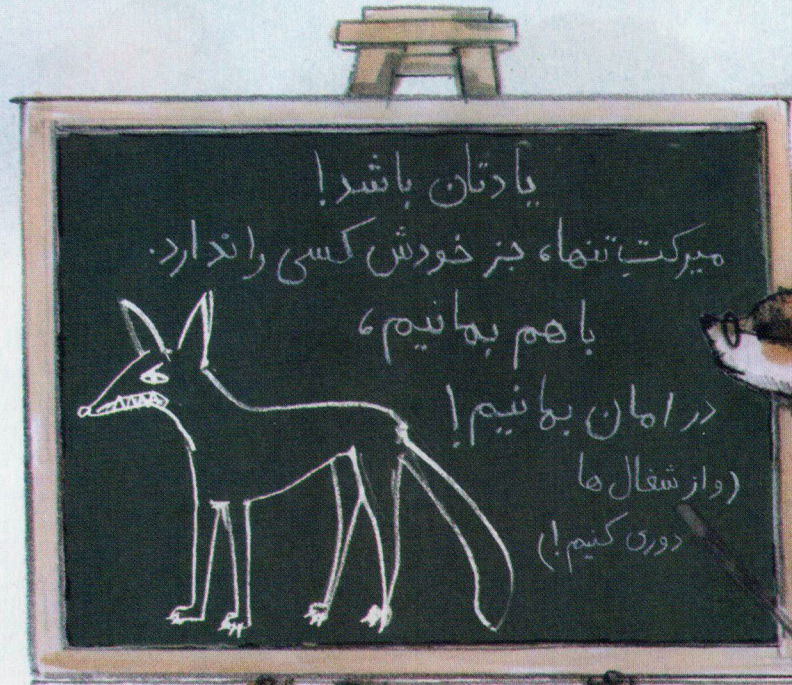 یادتان باشد!
میرکتِ تنها، جز خودش کسی را ندارد.
با هم بمانیم،
در امان بمانیم!
(و از شغال ها
دوری کنیم!)